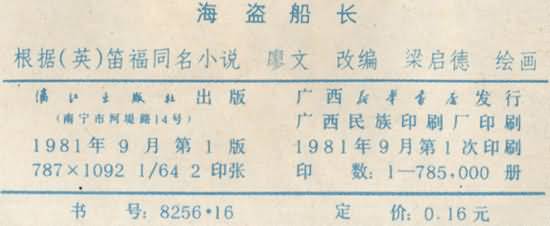 海盗船长
根据(英)笛福同名小说 廖文 改编 梁启德 绘画
漓江出版社出版
(南宁市河堤路14号)
1981年9月第1版
787×1092 1/64 2印张
广西新华书店发行
广西民族印刷厂印刷
1981年9月第1次印刷
印 数: 1—785,000 册
书 号: 8256·16 定 价: 0.16元